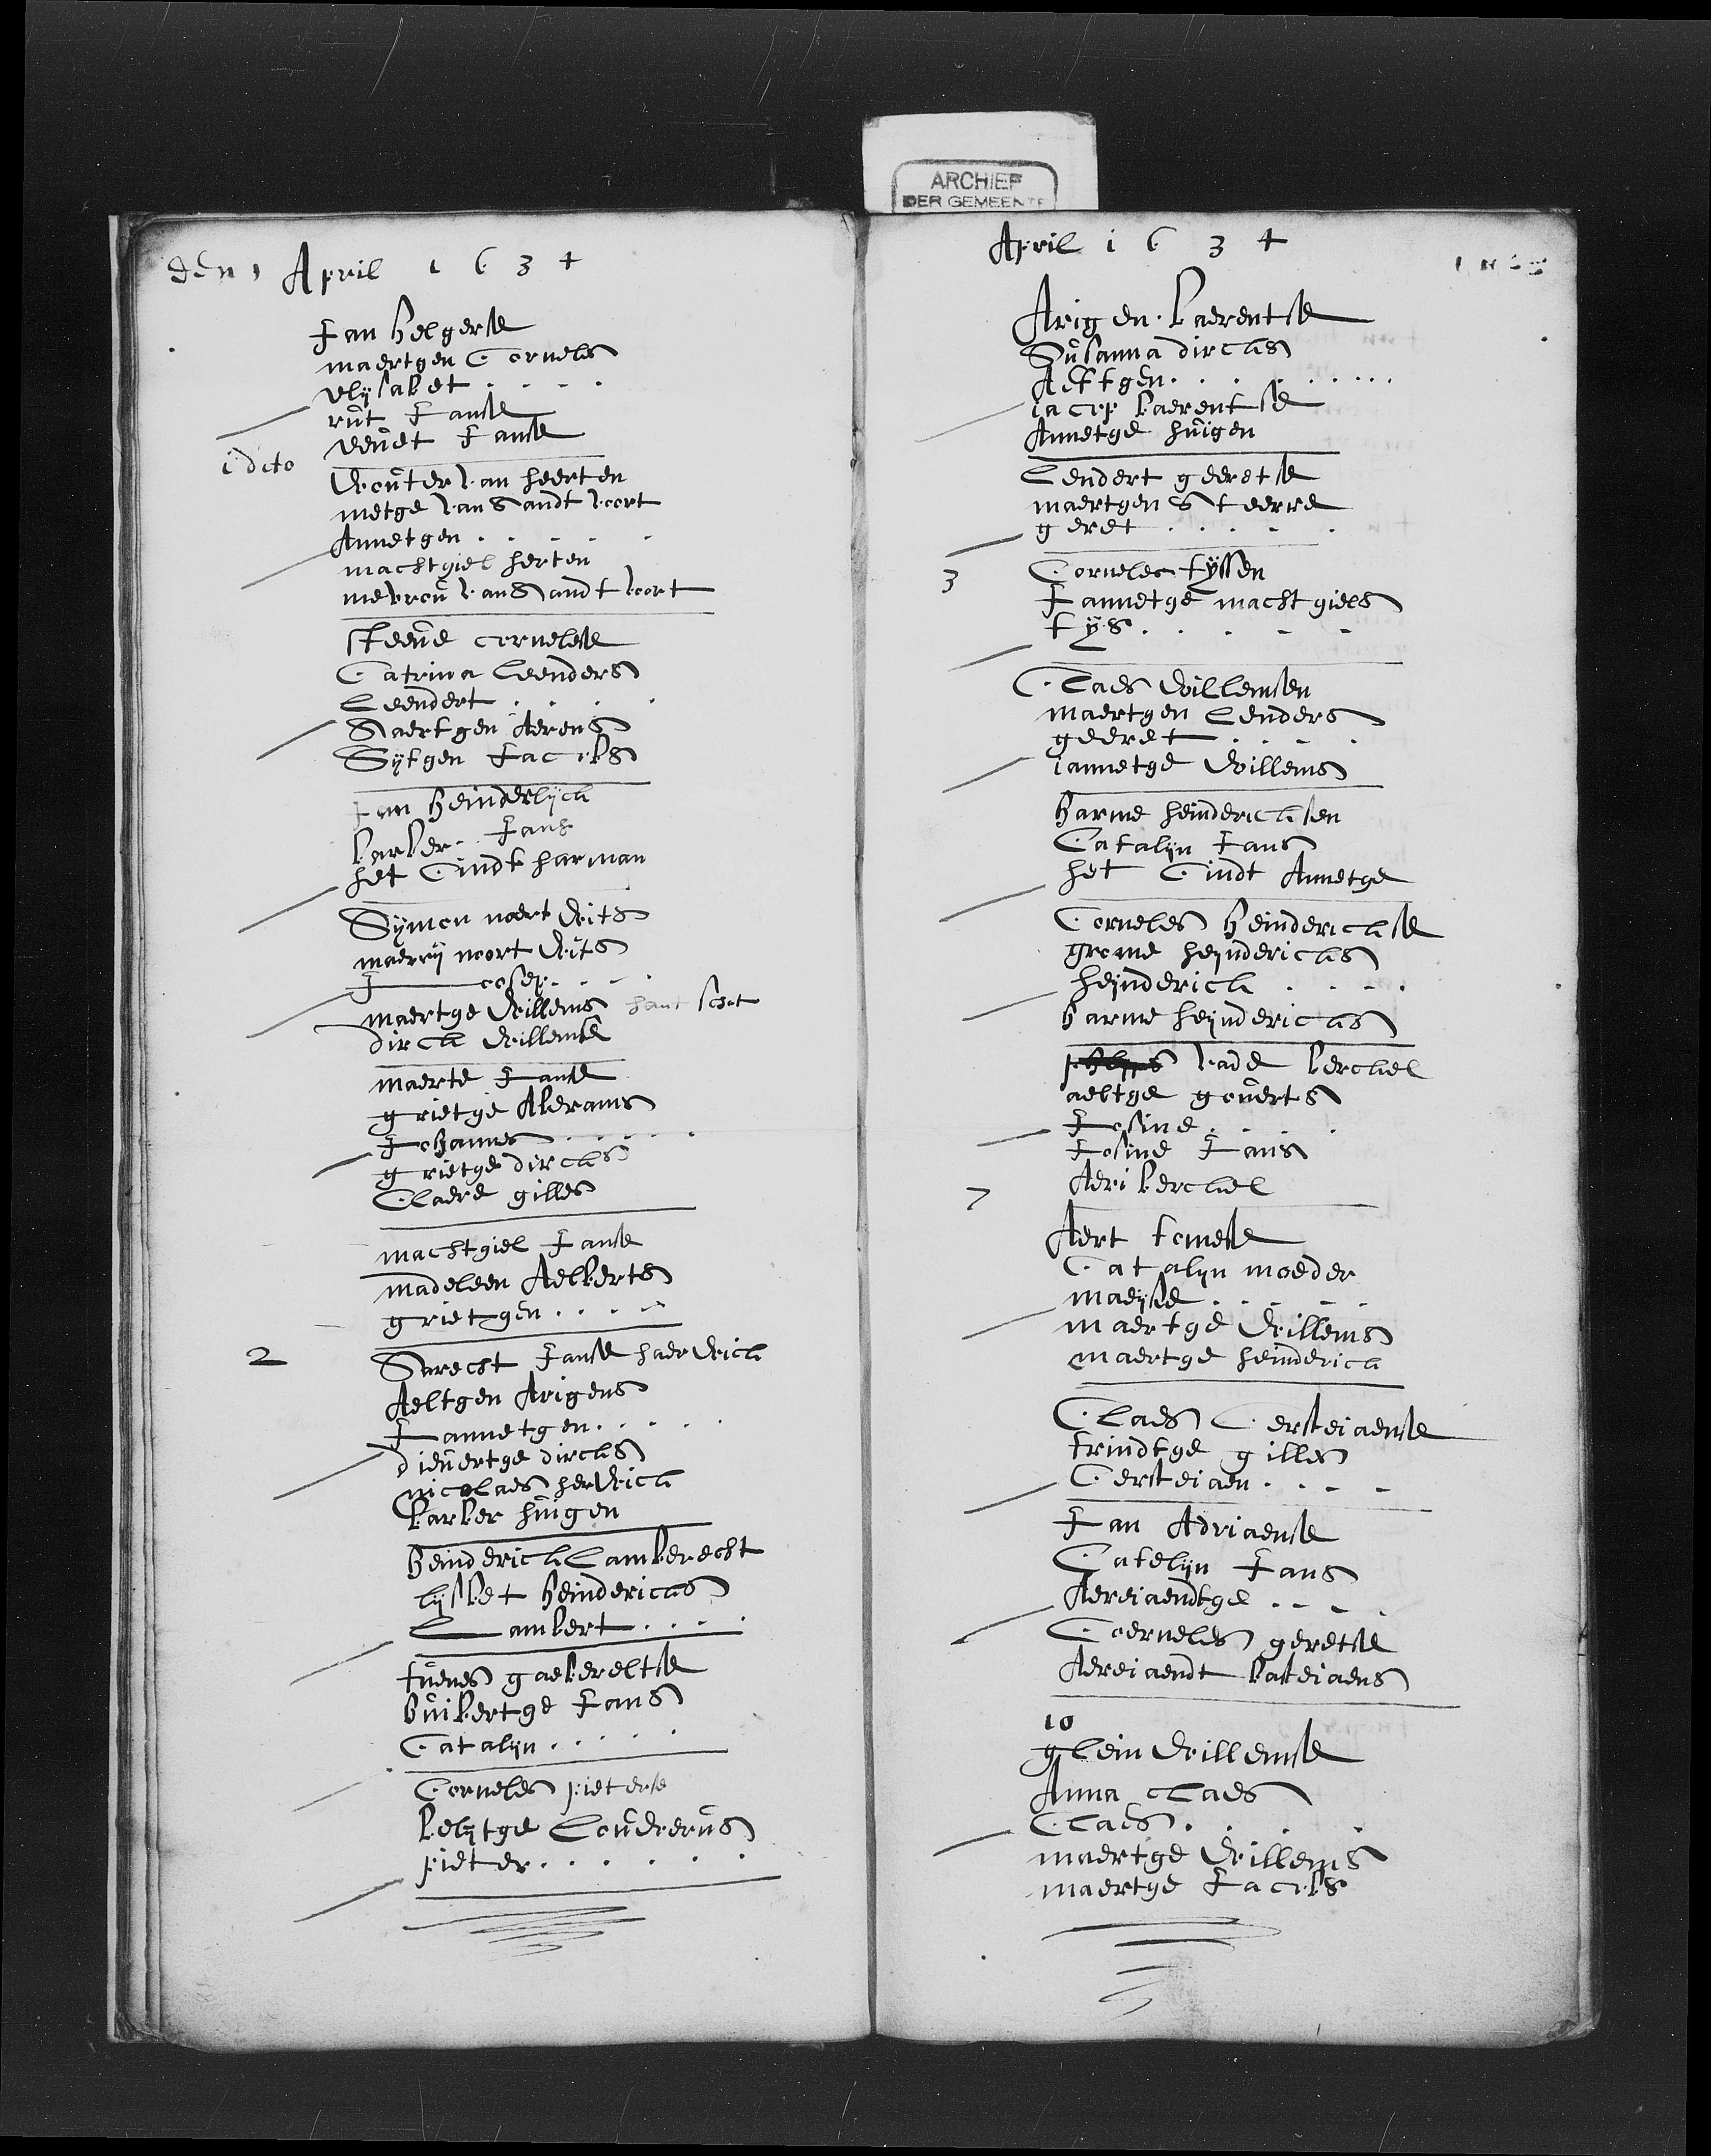 ARCHIEF
DER GEMEENTE
den 1 April 1634
Jan helgerse
maertgen Corneles
elijsabet . . . .
rut Janse
eeuet Janse
i dito
Wouter van heerten
metge van Sandt voort
Annetgen . . . .
machtgiel herten
mevrou van Sandt voort
steeue cornelese
Catrina leenders
leendert . . . .
Saertgen Aerens
Sytgen Jacobs
Jan heinderijck
barber Jans
het Cindt harman
Symon noort Wits
maerij noort Wits
Joosep . . . .
maertge Willems hant schot
dirck Willemse
maerte Janse
grietge Aberams
Johannes . . . .
grietge dircks
Claere gilles
machtgiel Janse
madeleen Aelberts
grietgen . . . .
2
Sarecht Janse haerwick
Aeltgen Arigens
Jannetgen . . . .
dieuertge dircks
nicolaes herwick
barber huigen
heinderick Camberecht
lijsbet heindericks
Lambert . . . .
tuenes gaebereltse
huibertge Jans
Catalijn . . . .
Corneles pieterse
belijtge Louwerus
pieter . . . . . .
April 1634
Arigen baerentse
Susanna dircks
Aeltgen . . . . . . .
iacop baerentse
Annetge huigen
lendert geeretse
maertgen Steerre
geret . . . .
3
Corneles tyssen
Jannetge machtgiels
tys . . . .
Claes Willemsen
maertgen lenders
geeret . . . .
iannetge Willems
harme heindericksen
Catalijn Jans
het Cindt Annetge
Corneles heinderickse
grome heijndericks
heijnderick . . . .
harme heijndericks
vade berckel
aeltge gouerts
Josine . . . .
Josine Jans
Aeri berckel
7
Aert tomese
Catalijn moeder
maeijke . . . .
maertge Willems
maertge heinderick
Claes Cersteiaense
trindtge gilles
Cersteiaen . . . .
Jan Adriaense
Catelijn Jans
Aereiaendtge . . . .
Coerneles geretse
Aereiaendt basteiaens
10
glein Willemse
Anna Claes
Claes . . . .
maertge Willems
maertge Jacobs